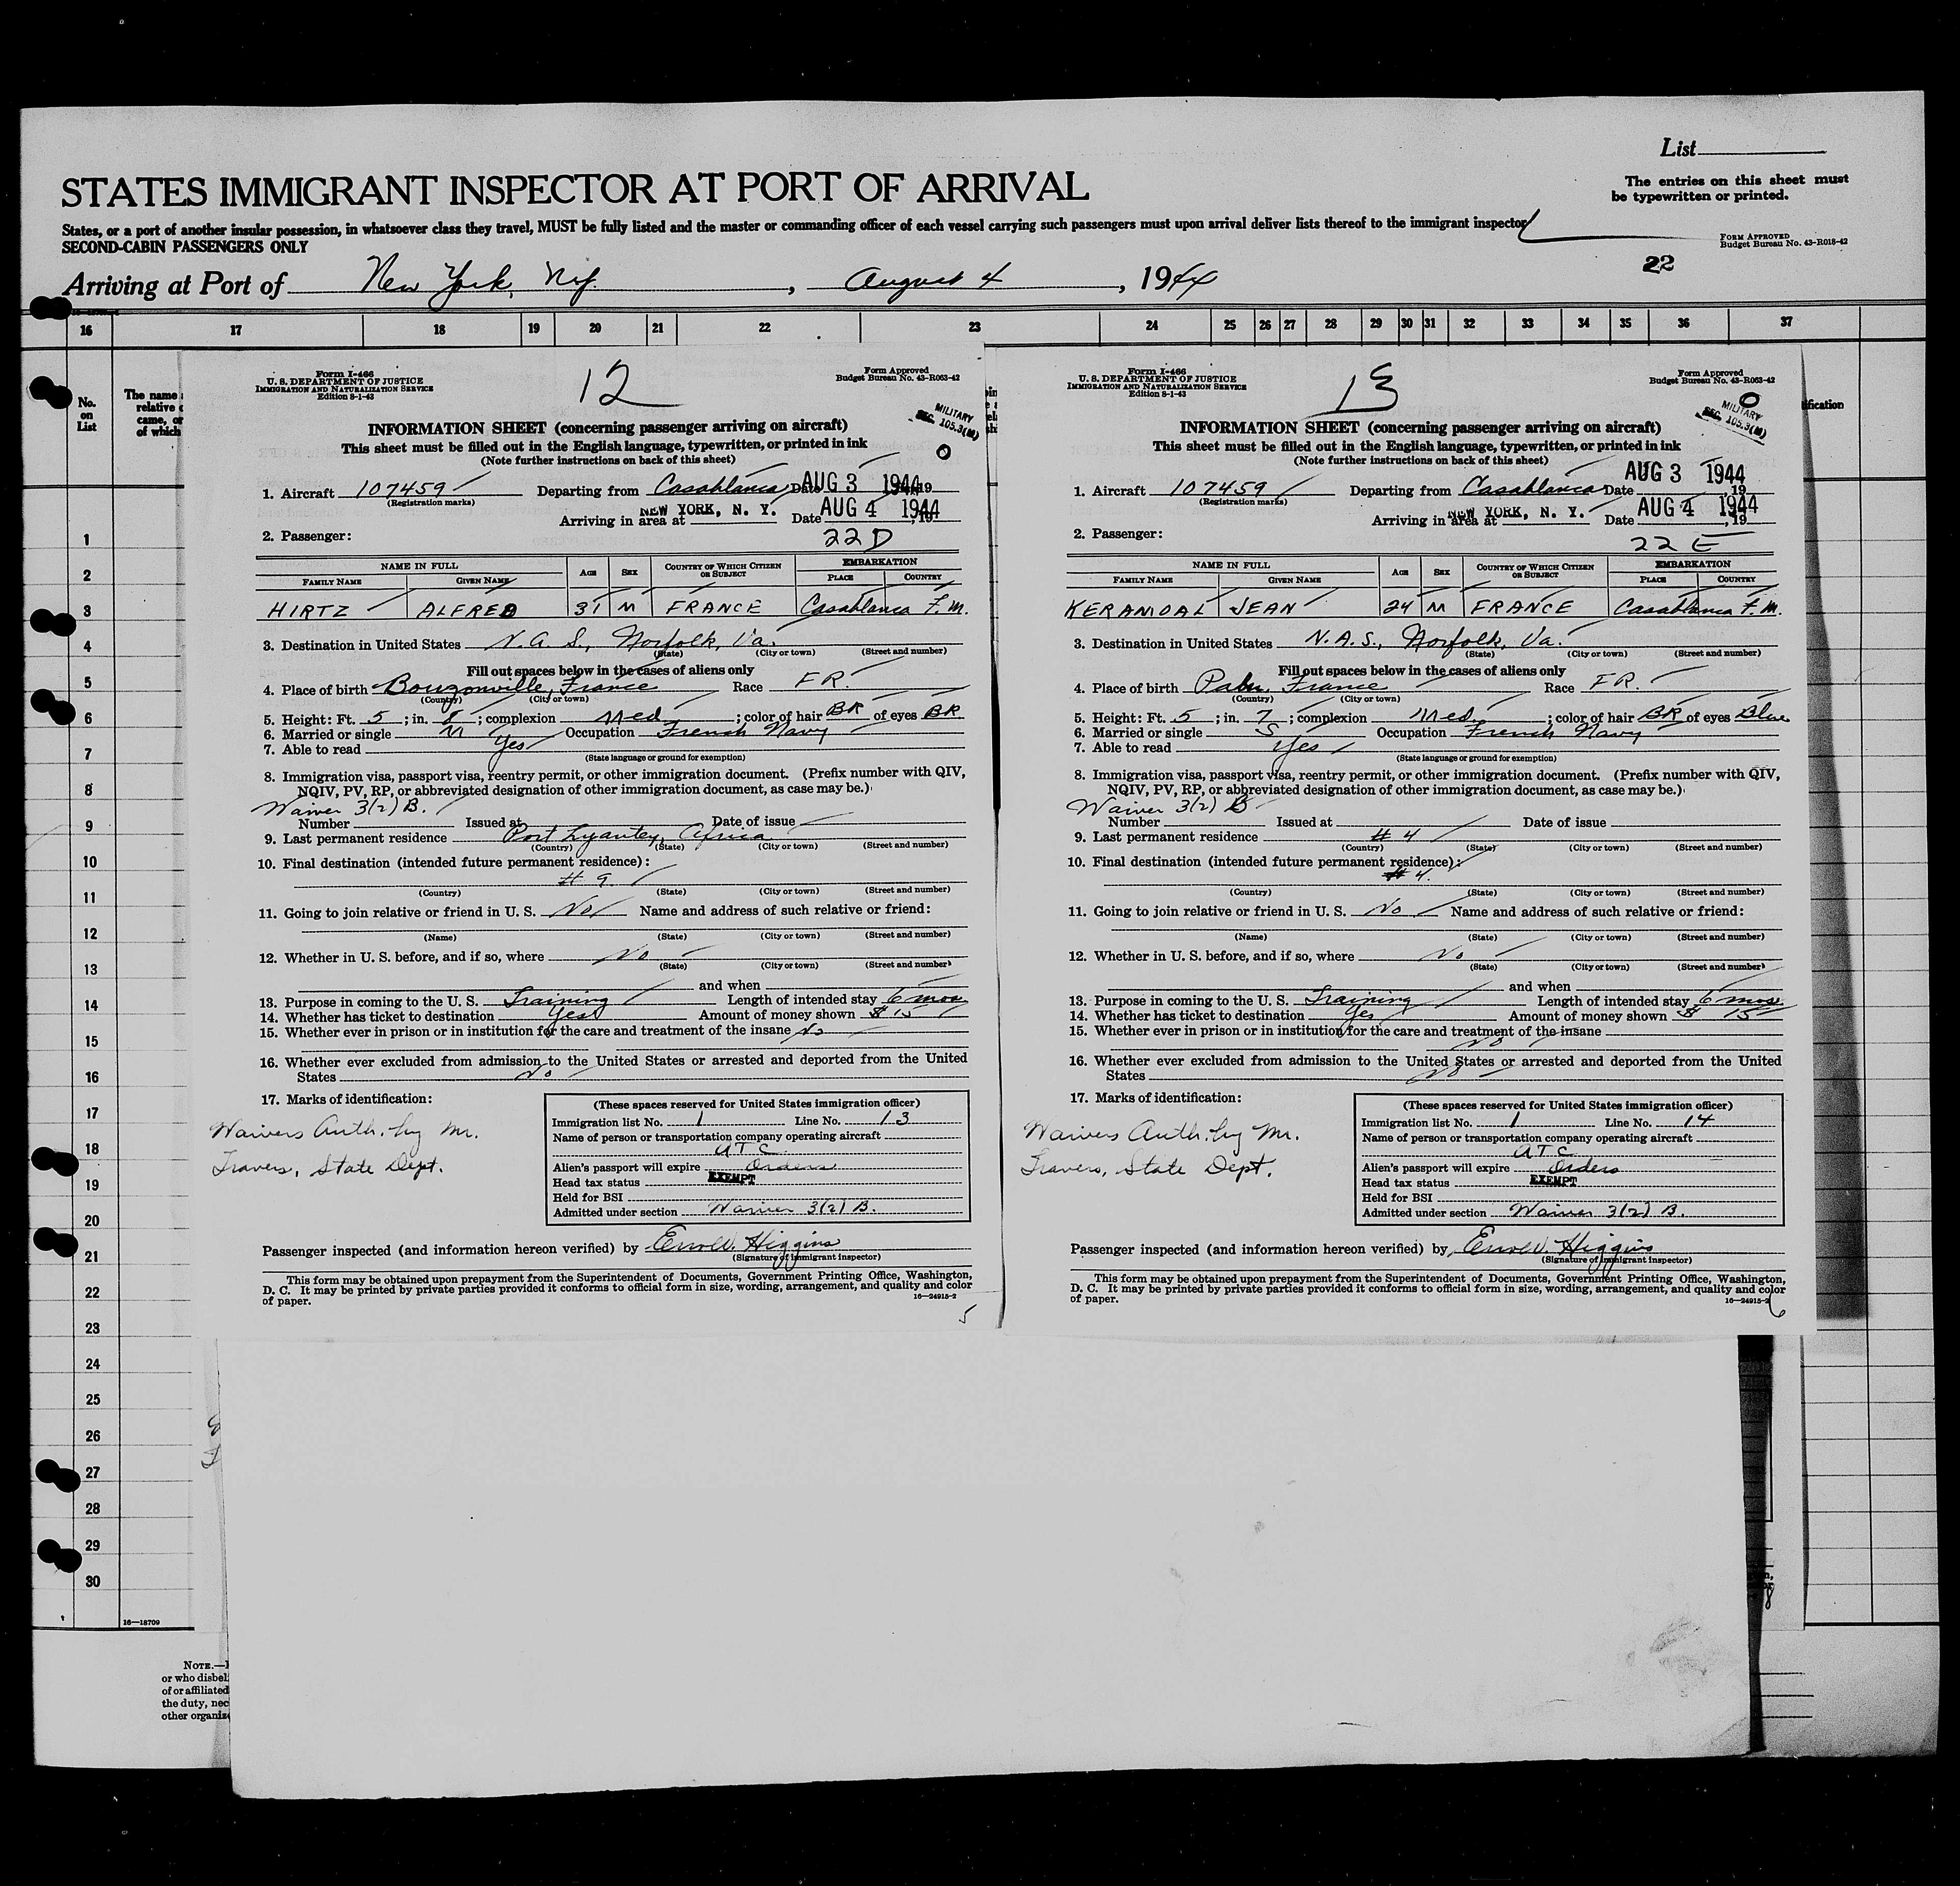 List
STATES IMMIGRANT INSPECTOR AT PORT OF ARRIVAL
The entries on this sheet must
be typewritten or printed.
States, or a port of another insular possession, in whatsoever class they travel, MUST be fully listed and the master or commanding officer of each vessel carrying such passengers must upon arrival deliver lists thereof to the immigrant inspector
SECOND-CABIN PASSENGERS ONLY
Form Approved
Budget Bureau No. 43-R018-42
22
Arriving at Port of New York, N.Y. , August 4 , 1944
16 17 18 19 20 21 22 23 24 25 26 27 28 29 30 31 32 33 34 35 36 37
No.
on
List
The name
relative
came, or
of which
1
2
3
4
5
6
7
8
9
10
11
12
13
14
15
16
17
18
19
20
21
22
23
24
25
26
27
28
29
30
16—18709
Note.—
or who disbel
of or affiliated
the duty, nec
other organiz
Form I-466
U. S. DEPARTMENT OF JUSTICE
Immigration and Naturalization Service
Edition 8-1-43
12
Form Approved
Budget Bureau No. 43-R063-42
MILITARY
SEC. 105.3(M)
0
INFORMATION SHEET (concerning passenger arriving on aircraft)
This sheet must be filled out in the English language, typewritten, or printed in ink
(Note further instructions on back of this sheet)
1. Aircraft 107459 Departing from Casablanca Date AUG 3 1944, 19
(Registration marks)
Arriving in area at NEW YORK, N. Y. Date AUG 4 1944, 19
2. Passenger: 22D
NAME IN FULL Age Sex Country of Which Citizen or Subject EMBARKATION
Family Name Given Name Place Country
HIRTZ ALFRED 31 M FRANCE Casablanca F.M.
3. Destination in United States N.A.S., Norfolk, Va.
(State) (City or town) (Street and number)
Fill out spaces below in the cases of aliens only
4. Place of birth Bouzonville, France Race FR.
(Country) (City or town)
5. Height: Ft. 5 ; in. 8 ; complexion Med ; color of hair BR of eyes BR
6. Married or single M Occupation French Navy
7. Able to read Yes
(State language or ground for exemption)
8. Immigration visa, passport visa, reentry permit, or other immigration document. (Prefix number with QIV,
NQIV, PV, RP, or abbreviated designation of other immigration document, as case may be.)
Waiver 3(2) B.
Number Issued at Date of issue
9. Last permanent residence Port Lyautey, Africa
(Country) (State) (City or town) (Street and number)
10. Final destination (intended future permanent residence):
# 9.
(Country) (State) (City or town) (Street and number)
11. Going to join relative or friend in U. S. No Name and address of such relative or friend:
(Name) (State) (City or town) (Street and number)
12. Whether in U. S. before, and if so, where No
(State) (City or town) (Street and number)
and when
13. Purpose in coming to the U. S. Training Length of intended stay 6 mos
14. Whether has ticket to destination Yes Amount of money shown $ 15
15. Whether ever in prison or in institution for the care and treatment of the insane No
16. Whether ever excluded from admission to the United States or arrested and deported from the United
States No
17. Marks of identification:
Waivers Auth. by Mr.
Travers, State Dept.
(These spaces reserved for United States immigration officer)
Immigration list No. 1 Line No. 13
Name of person or transportation company operating aircraft
ATC
Alien's passport will expire Orders
Head tax status EXEMPT
Held for BSI
Admitted under section Waiver 3(2) B.
Passenger inspected (and information hereon verified) by Higgins
(Signature of immigrant inspector)
This form may be obtained upon prepayment from the Superintendent of Documents, Government Printing Office, Washington,
D. C. It may be printed by private parties provided it conforms to official form in size, wording, arrangement, and quality and color
of paper.
16—24915-2
5
Form I-466
U. S. DEPARTMENT OF JUSTICE
Immigration and Naturalization Service
Edition 8-1-43
13
Form Approved
Budget Bureau No. 43-R063-42
0
MILITARY
SEC. 105.3(M)
ification
INFORMATION SHEET (concerning passenger arriving on aircraft)
This sheet must be filled out in the English language, typewritten, or printed in ink
(Note further instructions on back of this sheet)
1. Aircraft 107459 Departing from Casablanca Date AUG 3 1944, 19
(Registration marks)
Arriving in area at NEW YORK, N. Y. Date AUG 4 1944, 19
2. Passenger: 22 E
NAME IN FULL Age Sex Country of Which Citizen or Subject EMBARKATION
Family Name Given Name Place Country
KERAMOAL JEAN 24 M FRANCE Casablanca F.M.
3. Destination in United States N.A.S., Norfolk, Va.
(State) (City or town) (Street and number)
Fill out spaces below in the cases of aliens only
4. Place of birth France Race FR.
(Country) (City or town)
5. Height: Ft. 5 ; in. 7 ; complexion Med ; color of hair BR of eyes Blue
6. Married or single S Occupation French Navy
7. Able to read Yes
(State language or ground for exemption)
8. Immigration visa, passport visa, reentry permit, or other immigration document. (Prefix number with QIV,
NQIV, PV, RP, or abbreviated designation of other immigration document, as case may be.)
Waiver 3(2) B
Number Issued at Date of issue
9. Last permanent residence # 4
(Country) (State) (City or town) (Street and number)
10. Final destination (intended future permanent residence):
# 4.
(Country) (State) (City or town) (Street and number)
11. Going to join relative or friend in U. S. No Name and address of such relative or friend:
(Name) (State) (City or town) (Street and number)
12. Whether in U. S. before, and if so, where No
(State) (City or town) (Street and number)
and when
13. Purpose in coming to the U. S. Training Length of intended stay 6 mos
14. Whether has ticket to destination Yes Amount of money shown $ 15
15. Whether ever in prison or in institution for the care and treatment of the insane
No
16. Whether ever excluded from admission to the United States or arrested and deported from the United
States No
17. Marks of identification:
Waivers Auth. by Mr.
Travers, State Dept.
(These spaces reserved for United States immigration officer)
Immigration list No. 1 Line No. 14
Name of person or transportation company operating aircraft
ATC
Alien's passport will expire Orders
Head tax status EXEMPT
Held for BSI
Admitted under section Waiver 3(2) B.
Passenger inspected (and information hereon verified) by Higgins
(Signature of immigrant inspector)
This form may be obtained upon prepayment from the Superintendent of Documents, Government Printing Office, Washington,
D. C. It may be printed by private parties provided it conforms to official form in size, wording, arrangement, and quality and color
of paper.
16—24915-2
6